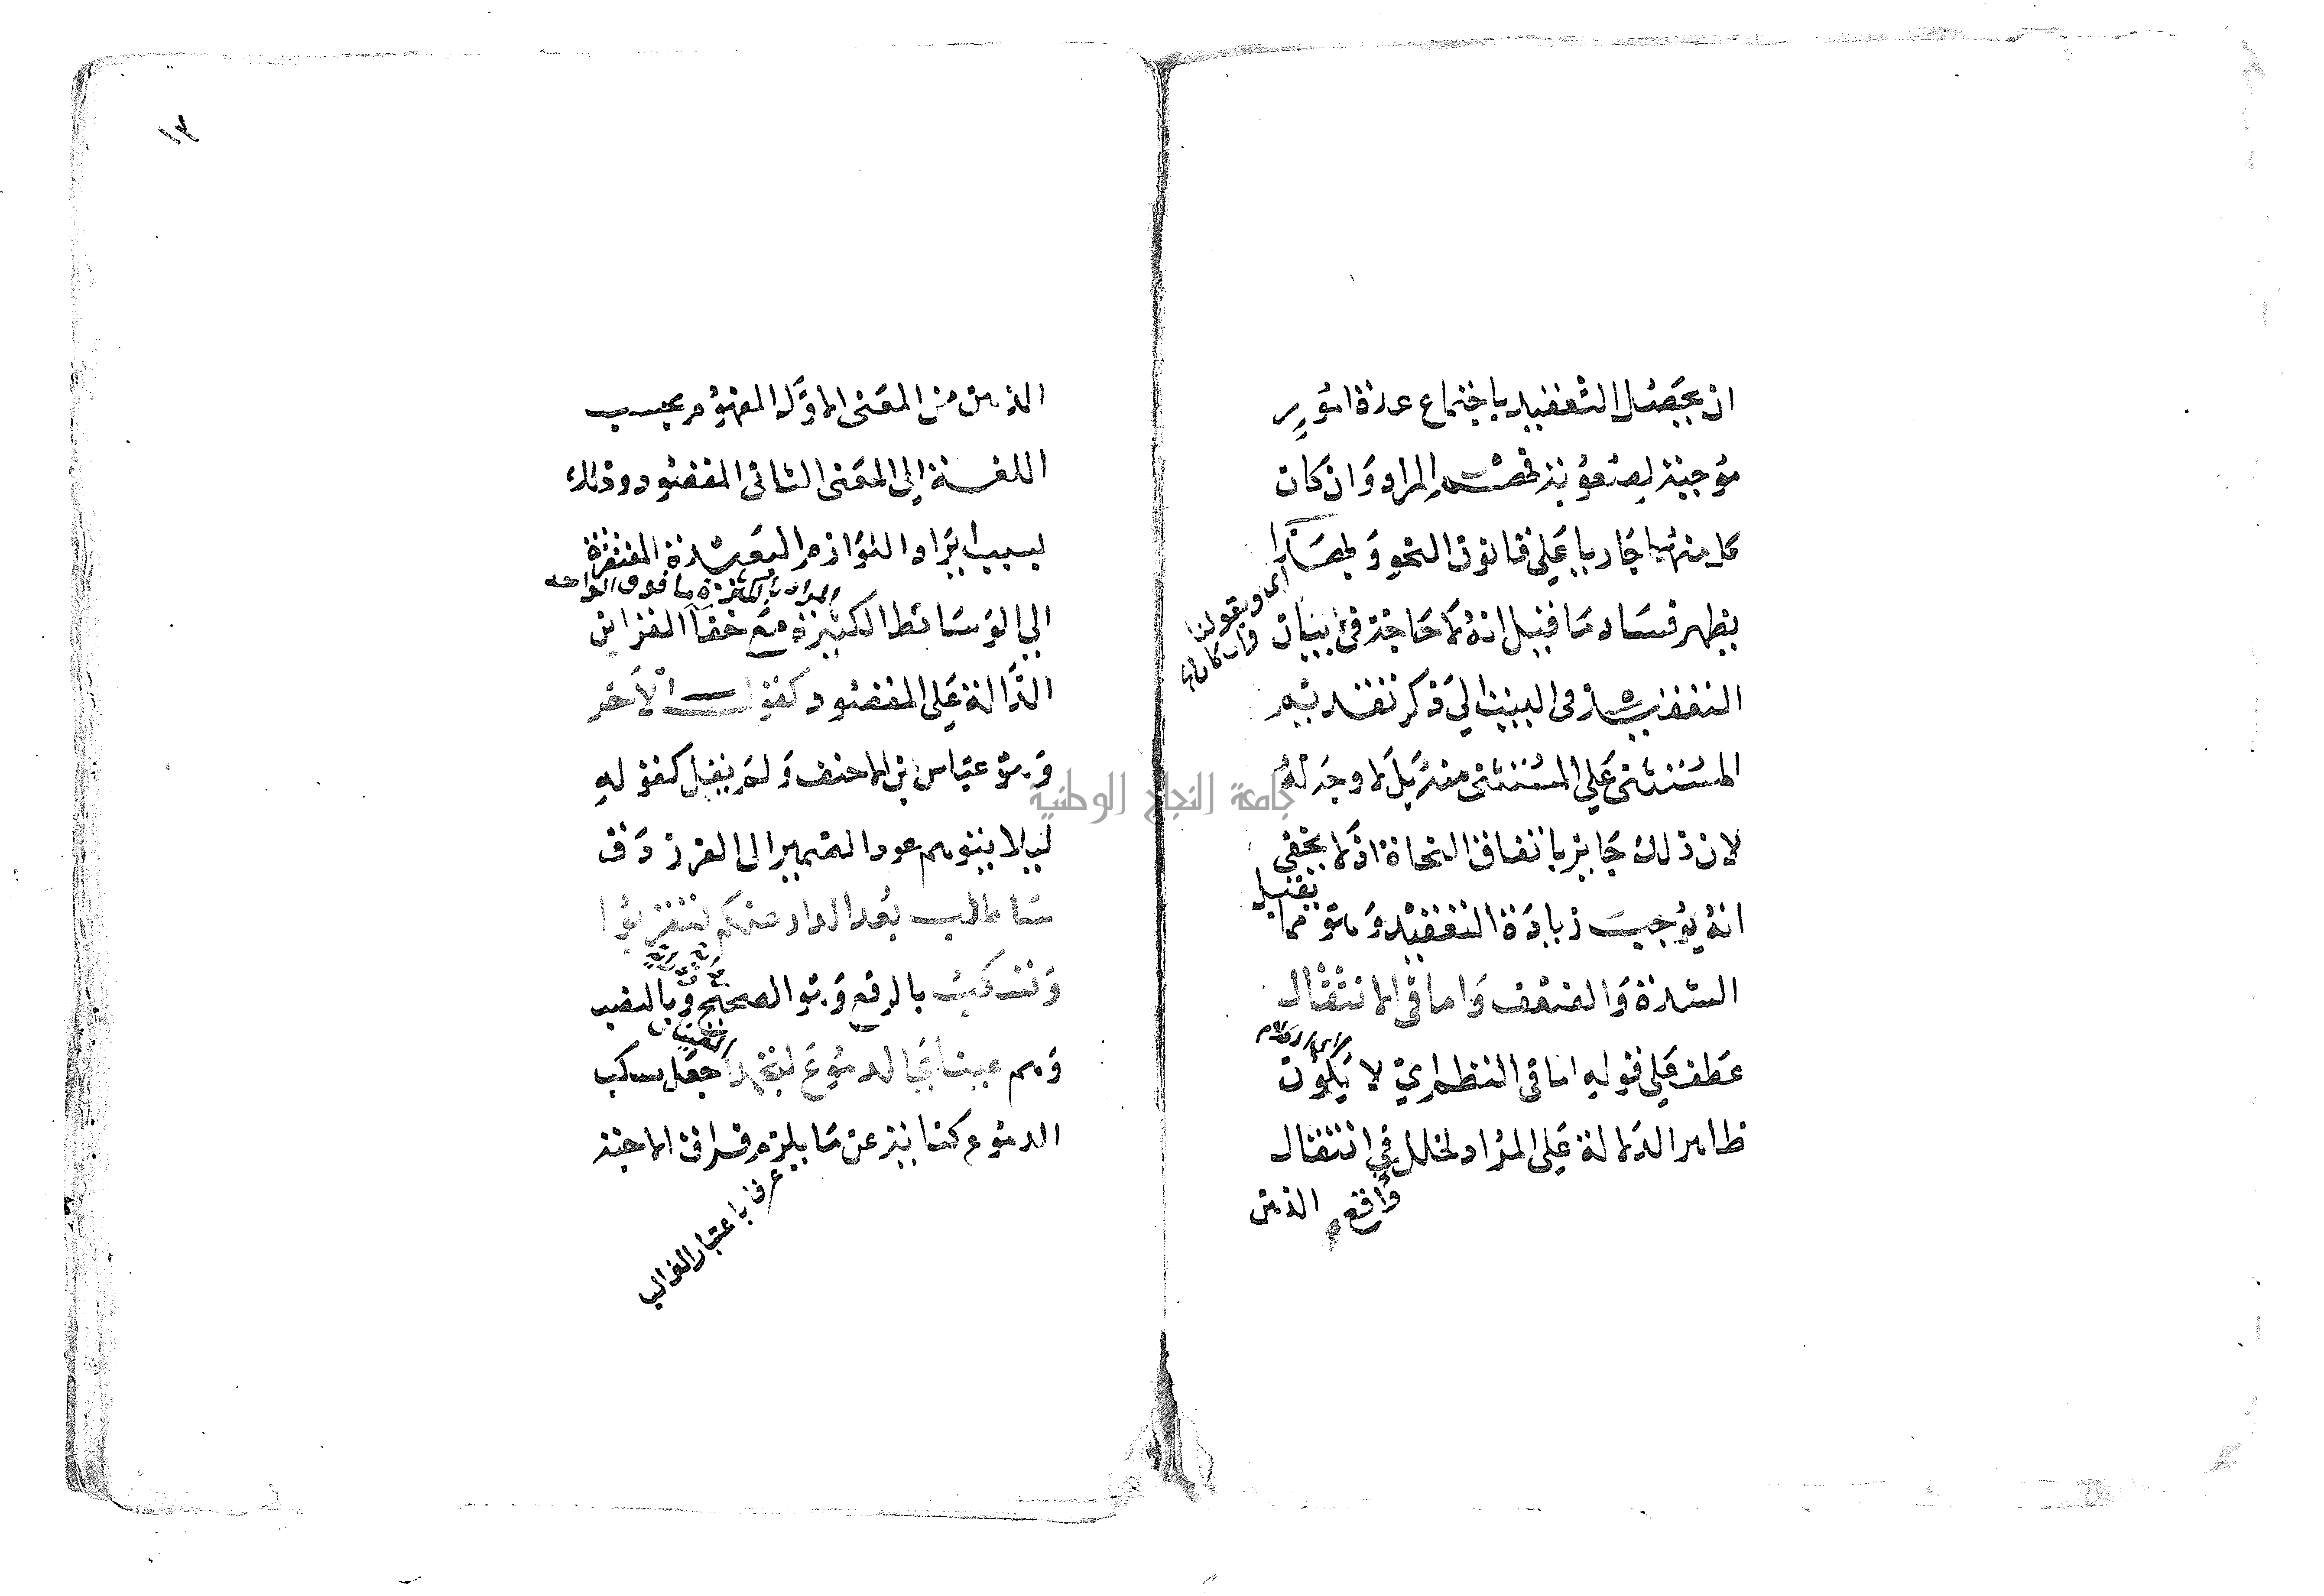 ان يحصل التعقيد باجتماع عدة امور
موجبة لصعوبة فهم المراد وان كان
كل منها جاريا على قانون النحو وبهذا
اي وبقولنا وان كان
يظهر فساد ما قيل انه لا حاجة في بيان
التعقيد في البيت الي ذكر تقديم
المستثنى علي المستثنى منه بل لا وجه له
لان ذلك جايز باتفاق النحاة اذ لا يخفى
انه يوجب زيادة التعقيد وهو مما يقبل
الشدة والضعف واما في الانتقال
عطف على قوله اما في النظم اي لا يكون
ظاهر الدلالة على المراد لخلل في انتقال
واقع
الذهن
١٣
الذهن من المعنى الاول المفهوم بحسب
اللغة الى المعنى الثاني المقصود وذلك
بسبب ايراد اللوازم البعيدة المفتقرة
المراد بالكثرة ما فوق الواحد
الي الوسائط الكثيرة مع خفا القراين
الدالة على المقصود كقول الآخر
وهو عباس بن الاحنف ولم يقل كقوله
ليلا يتوهم عود الضمير الى الفرزدق
ساطلب بعد الدار عنكم لتقربوا
وتسكب بالرفع وهو الصحيح وبالنصب
وهم عيناي الدموع لتجمدا جعل سكب
الدموع كناية عن ما يلزم فراق الاحبة
عرفا باعتبار الغالب
جامعة النجاح الوطنية